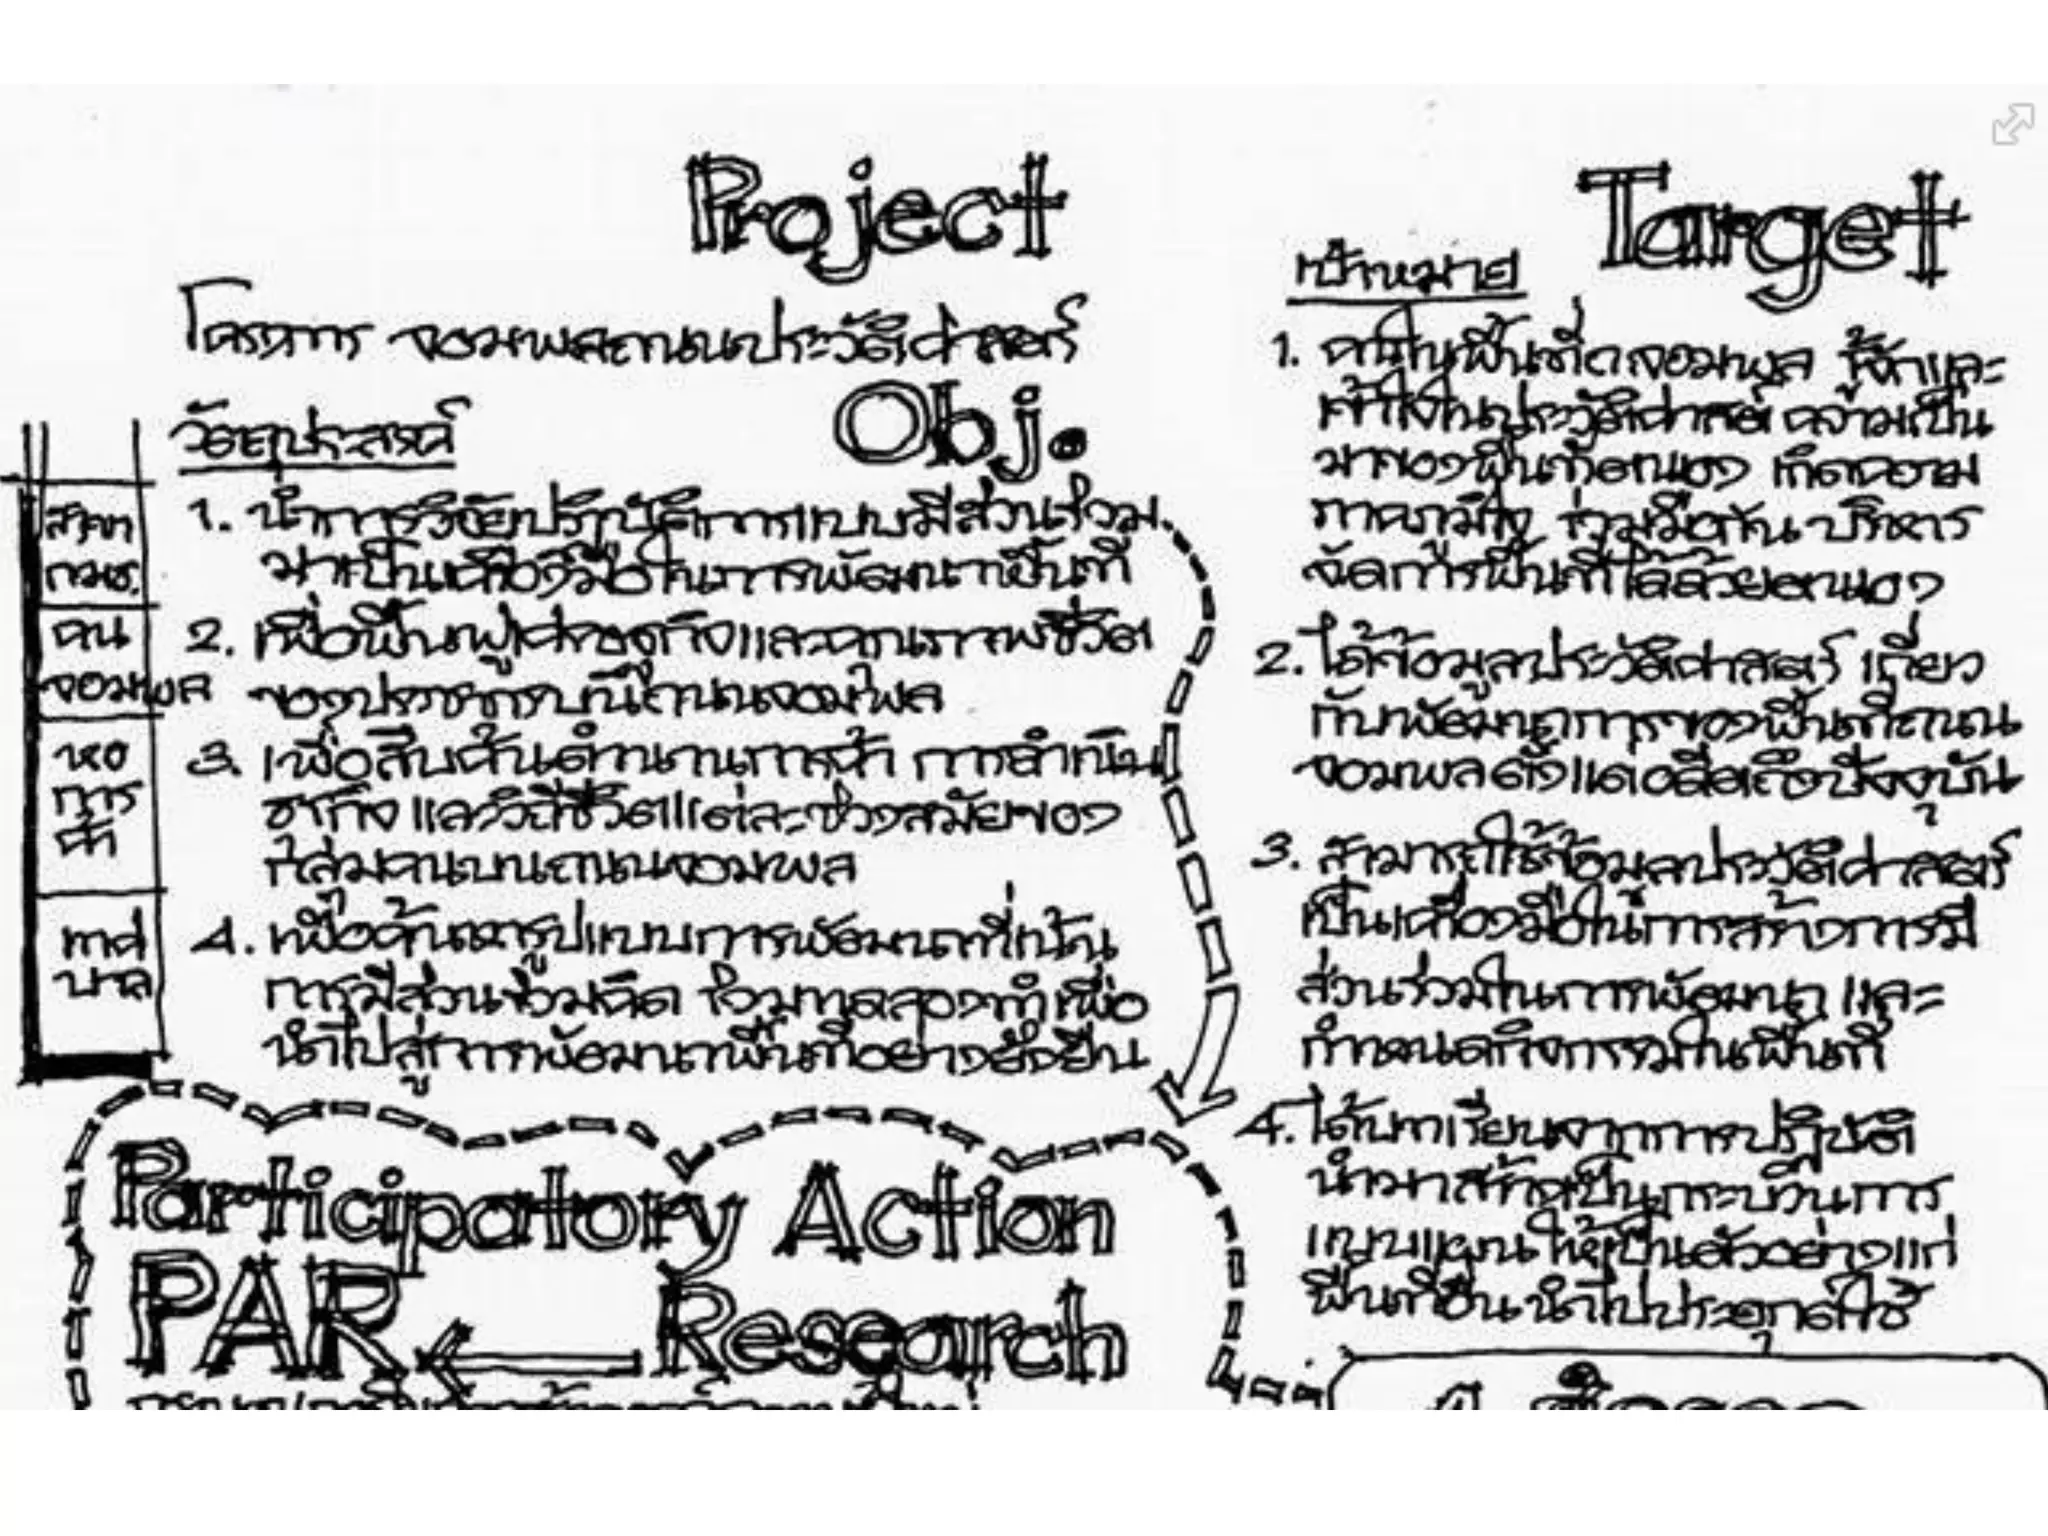 Project
โครงการ จอมพลถนนประวัติศาสตร์
วัตถุประสงค์
Obj.
1. นำการวิจัยปฏิบัติการแบบมีส่วนร่วม
มาเป็นเครื่องมือในการพัฒนาพื้นที่
2. เพื่อฟื้นฟูเศรษฐกิจและคุณภาพชีวิต
ของประชากรบนถนนจอมพล
3. เพื่อสืบค้นตำนานการค้า การดำเนิน
ธุรกิจ และวิถีชีวิตแต่ละช่วงสมัยของ
กลุ่มคนบนถนนจอมพล
4. เพื่อค้นหารูปแบบการพัฒนาที่เน้น
การมีส่วนร่วมคิด ร่วมทดลองทำ เพื่อ
นำไปสู่การพัฒนาพื้นที่อย่างยั่งยืน
สภา
กมช.
คน
จอมพล
หอ
การ
ค้า
เทศ
บาล
Participatory Action
PAR Research
Target
เป้าหมาย
1. คนในพื้นที่ถ.จอมพล รู้จักและ
เข้าใจในประวัติศาสตร์ ความเป็น
มาของพื้นที่ตนเอง เกิดความ
ภาคภูมิใจ ร่วมมือกัน บริหาร
จัดการพื้นที่ได้ด้วยตนเอง
2. ได้ข้อมูลประวัติศาสตร์ เกี่ยว
กับพัฒนาการของพื้นที่ถนน
จอมพลตั้งแต่อดีตถึงปัจจุบัน
3. สามารถใช้ข้อมูลประวัติศาสตร์
เป็นเครื่องมือในการสร้างการมี
ส่วนร่วมในการพัฒนา และ
กำหนดกิจกรรมในพื้นที่
4. ได้บทเรียนจากการปฏิบัติ
นำมาสร้างเป็นกระบวนการ
แบบแผนให้เป็นตัวอย่างแก่
พื้นที่อื่น นำไปประยุกต์ใช้